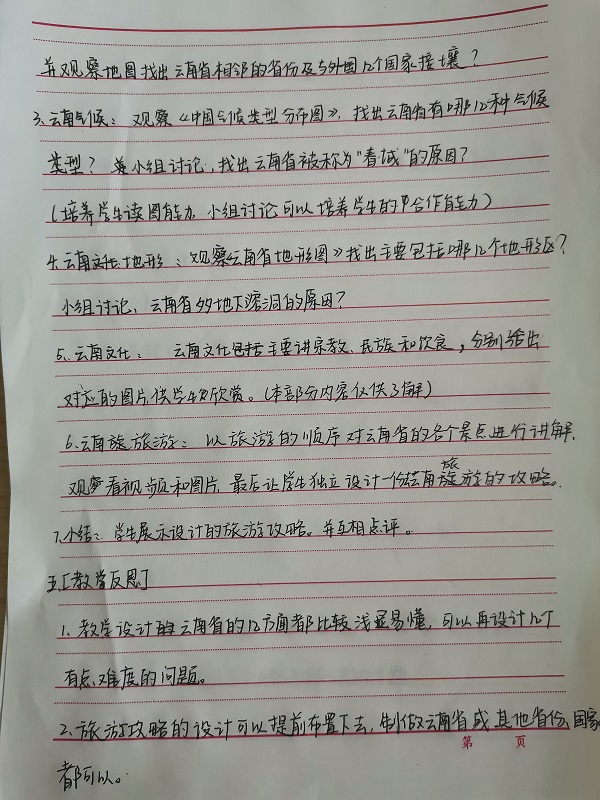 并观察地图找出云南省相邻的省份及与外国几个国家接壤？
3.云南气候：观察《中国气候类型分布图》，找出云南省有哪几种气候
类型？ 小组讨论，找出云南省被称为"春城"的原因？
（培养学生读图能力，小组讨论可以培养学生的合作能力）
4.云南地形：观察《云南省地形图》找出主要包括哪几个地形区？
小组讨论，云南省多地下溶洞的原因？
5.云南文化：云南文化主要讲宗教、民族和饮食，分别给出
对应的图片供学生欣赏。（本部分内容仅供了解）
6.云南旅游：以旅游的顺序对云南省的各个景点进行讲解，
观看视频和图片，最后让学生独立设计一份云南旅游的攻略。
7.小结：学生展示设计的旅游攻略。并互相点评。
五.[教学反思]
1.教学设计的云南省的几方面都比较浅显易懂，可以再设计几个
有点难度的问题。
2.旅游攻略的设计可以提前布置下去，制做云南省或其他省份、国家
第 页
都可以。